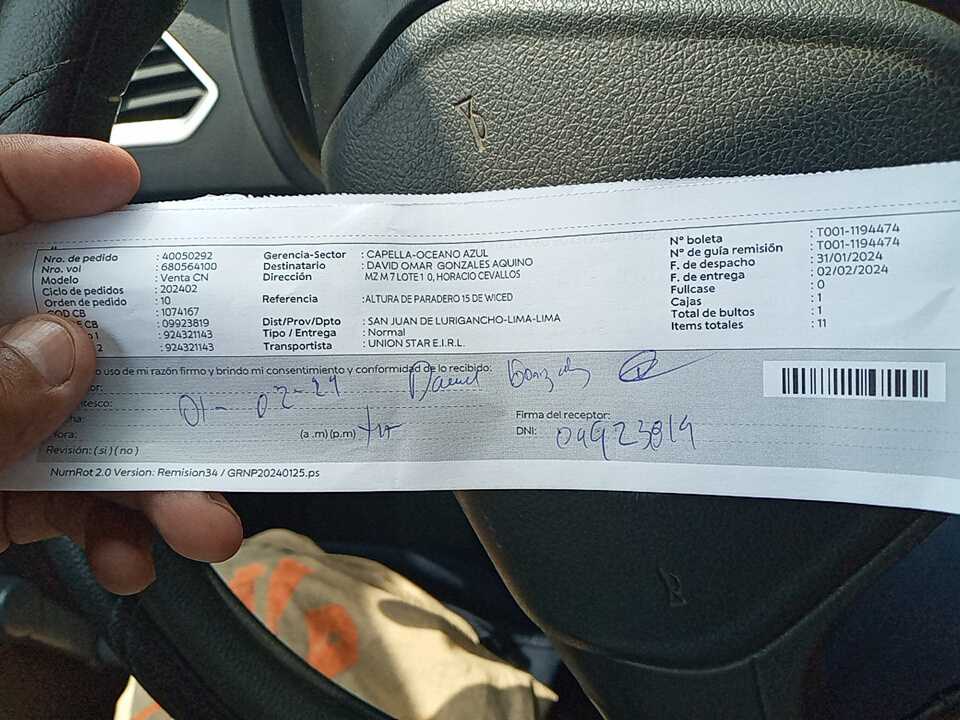 Nro. de pedido : 40050292
Nro. vol : 680564100
Modelo : Venta CN
Ciclo de pedidos : 202402
Orden de pedido : 10
COD CB : 1074167
E CB : 09923819
1 : 924321143
2 : 924321143
Gerencia-Sector : CAPELLA-OCEANO AZUL
Destinatario : DAVID OMAR GONZALES AQUINO
Dirección MZ M 7 LOTE 1 0, HORACIO CEVALLOS
Referencia :ALTURA DE PARADERO 15 DE WICED
Dist/Prov/Dpto : SAN JUAN DE LURIGANCHO-LIMA-LIMA
Tipo / Entrega : Normal
Transportista : UNION STAR E.I.R.L.
N° boleta : T001-1194474
N° de guía remisión : T001-1194474
F. de despacho : 31/01/2024
F. de entrega : 02/02/2024
Fullcase : 0
Cajas : 1
Total de bultos : 1
Items totales : 11
o uso de mi razón firmo y brindo mi consentimiento y conformidad de lo recibido:
or:
ntesco:
01-02-24
ha:
ora: (a .m) (p.m)
Firma del receptor:
DNI: 09923819
Revisión: ( si ) ( no )
NumRot 2.0 Version: Remision34 / GRNP20240125.ps